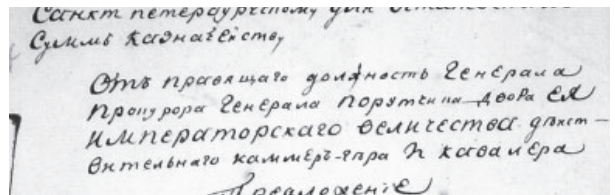 Санкт петербургскому для остаточных
Суммъ казначейству
Отъ правящаго должность Генерала
Прокурора Генерала Порутчика двора ЕЯ
ИМПЕРАТОРСКАГО величества дѣйст-
вительнаго каммеръ-гера и кавалера
Предложение